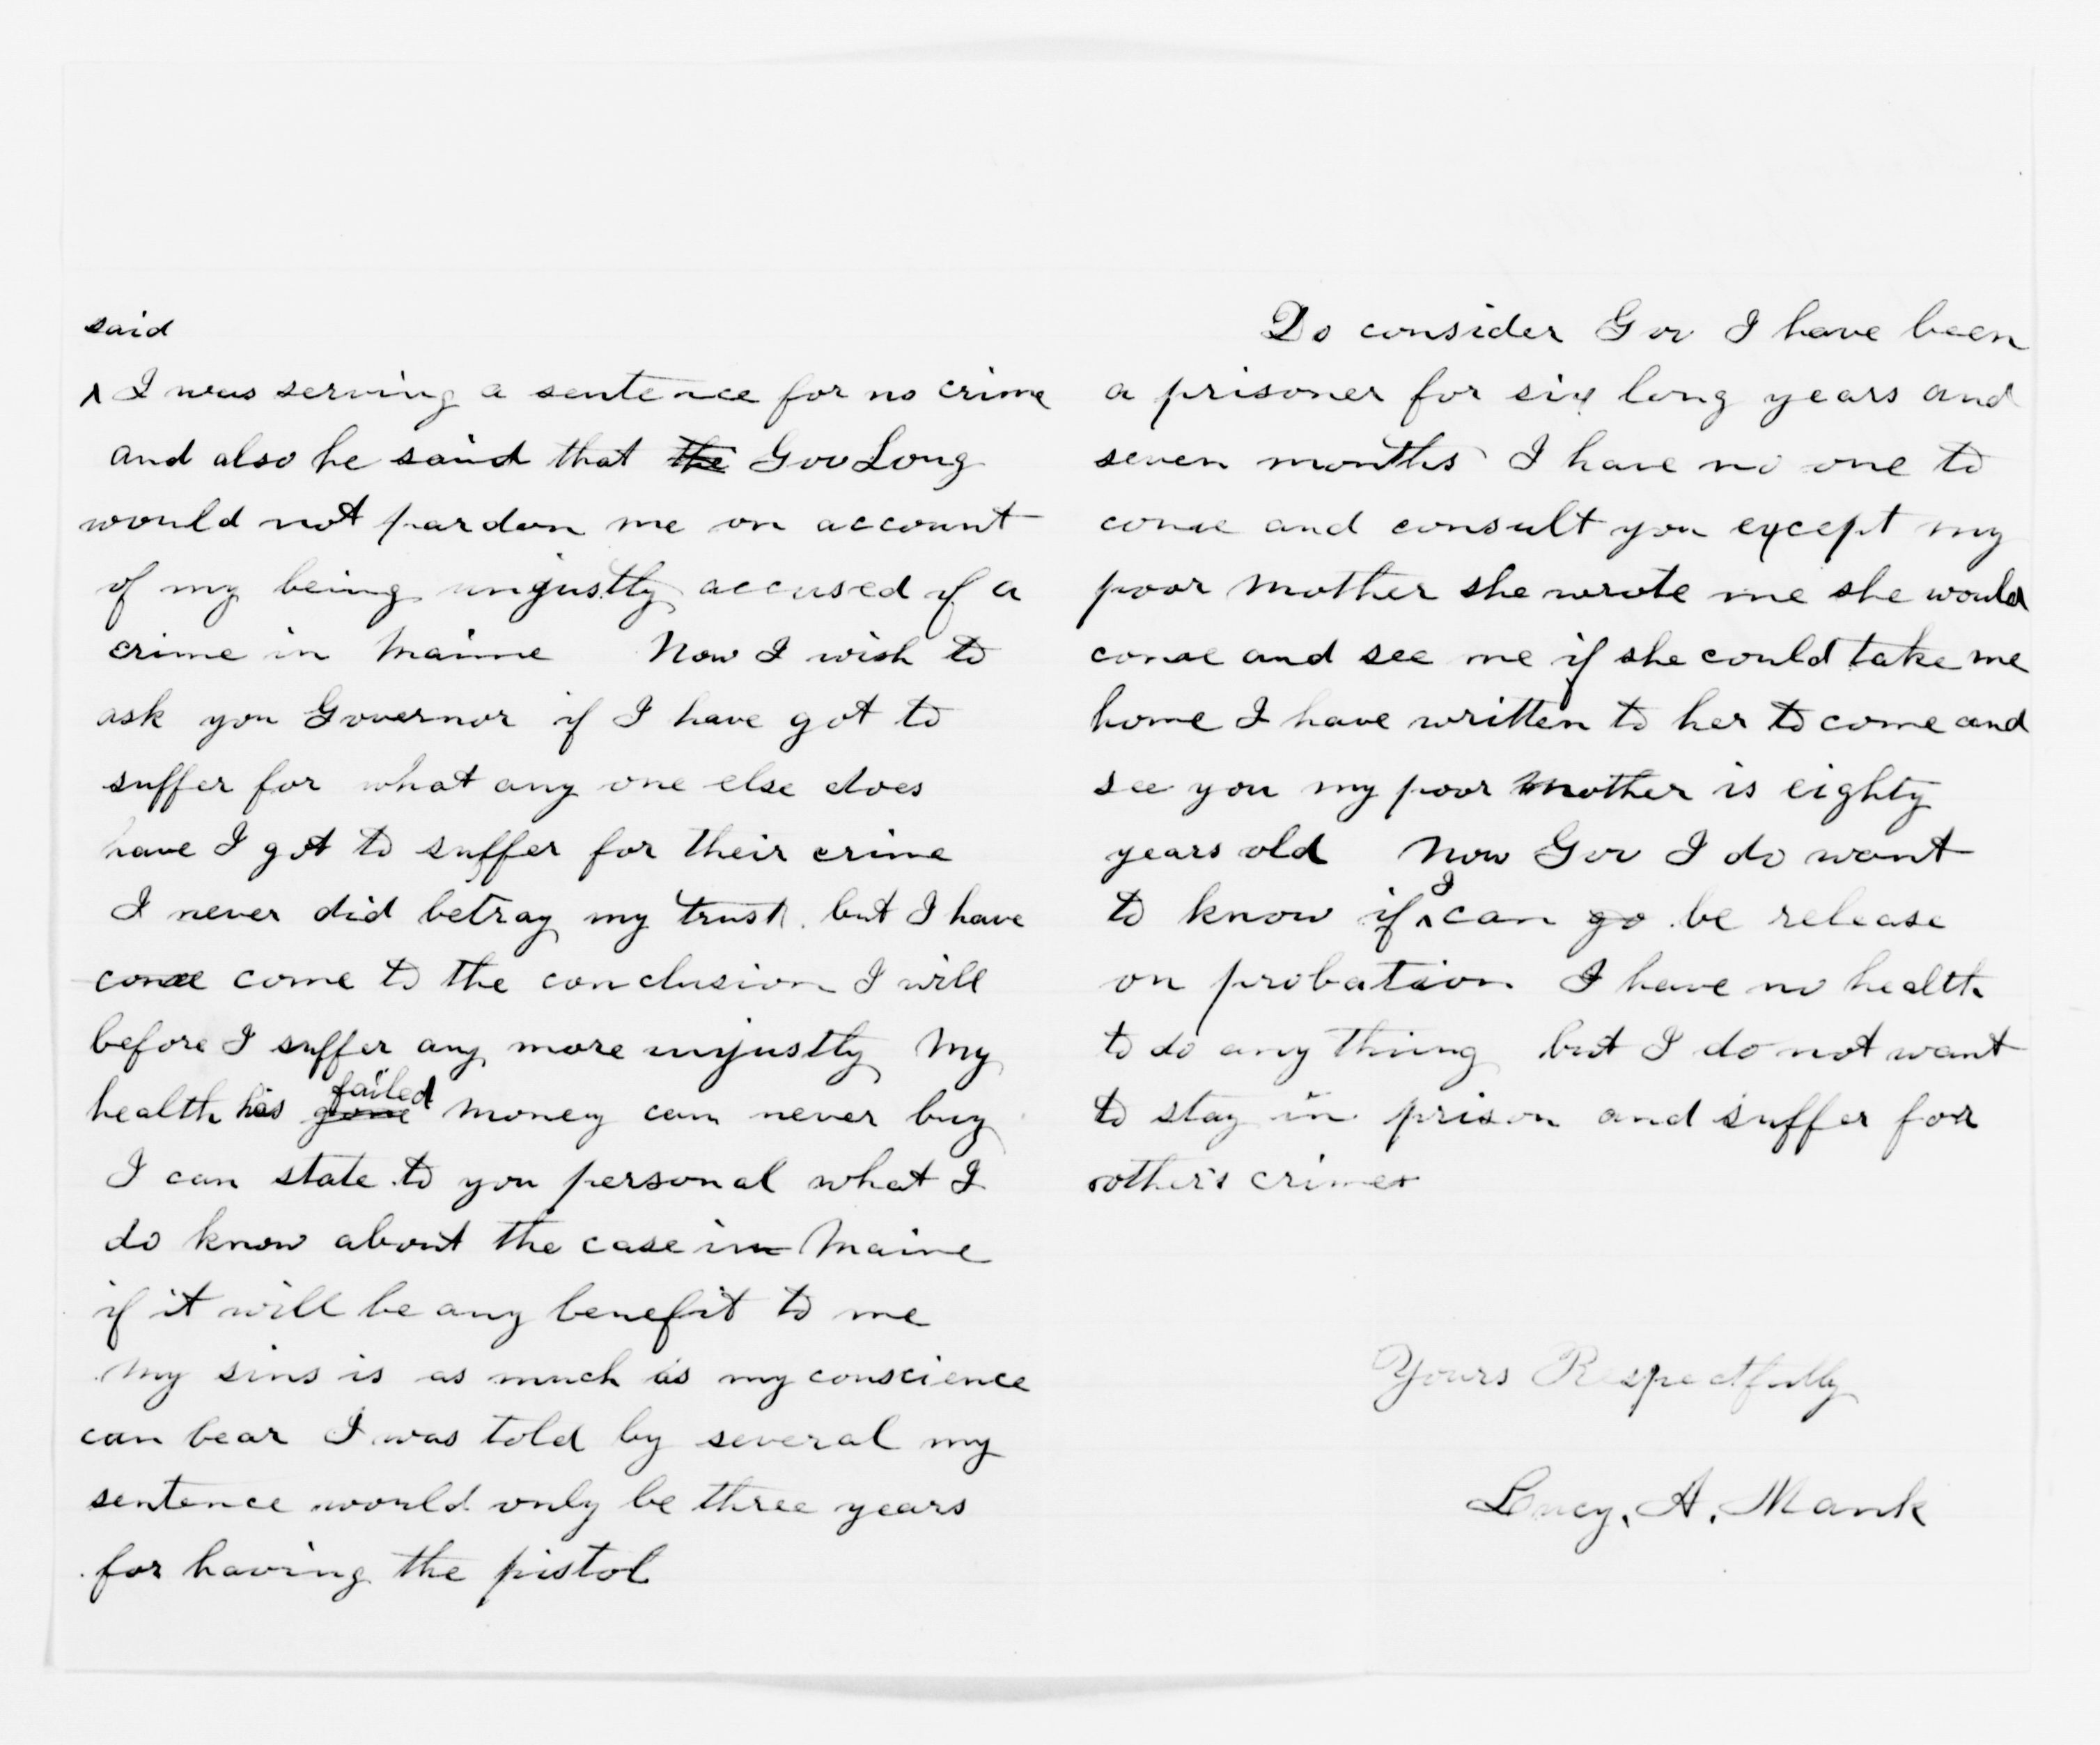 said
^ I was serving a sentence for no crime
and also he said that the Gov Long
would not pardon me on account
of my being unjustly accused of a
crime in Maine Now I wish to
ask you Governor if I have got to
suffer for what any one else does
have I got to suffer for their crime
I never did betray my trust. but I have
come come to the conclusion I will
before I suffer any more unjustly My
failed
health has gone money can never buy
I can state to you personal what I
do know about the case in Maine
if it will be any benefit to me
My sins is as much as my conscience
can bear I was told by several my
sentence would only be three years
for having the pistol
Do consider Gov I have been
a prisoner for six long years and
seven months I have no one to
come and consult you except my
poor Mother she wrote me she would
come and see me if she could take me
home I have written to her to come and
see you my poor Mother is eighty
years old Now Gov I do want
I
to know if ^ can go be release
on probation I have no health
to do any thing but I do not want
to stay in prison and suffer for
others crimes
Yours Respectfully
Lucy, A, Mank